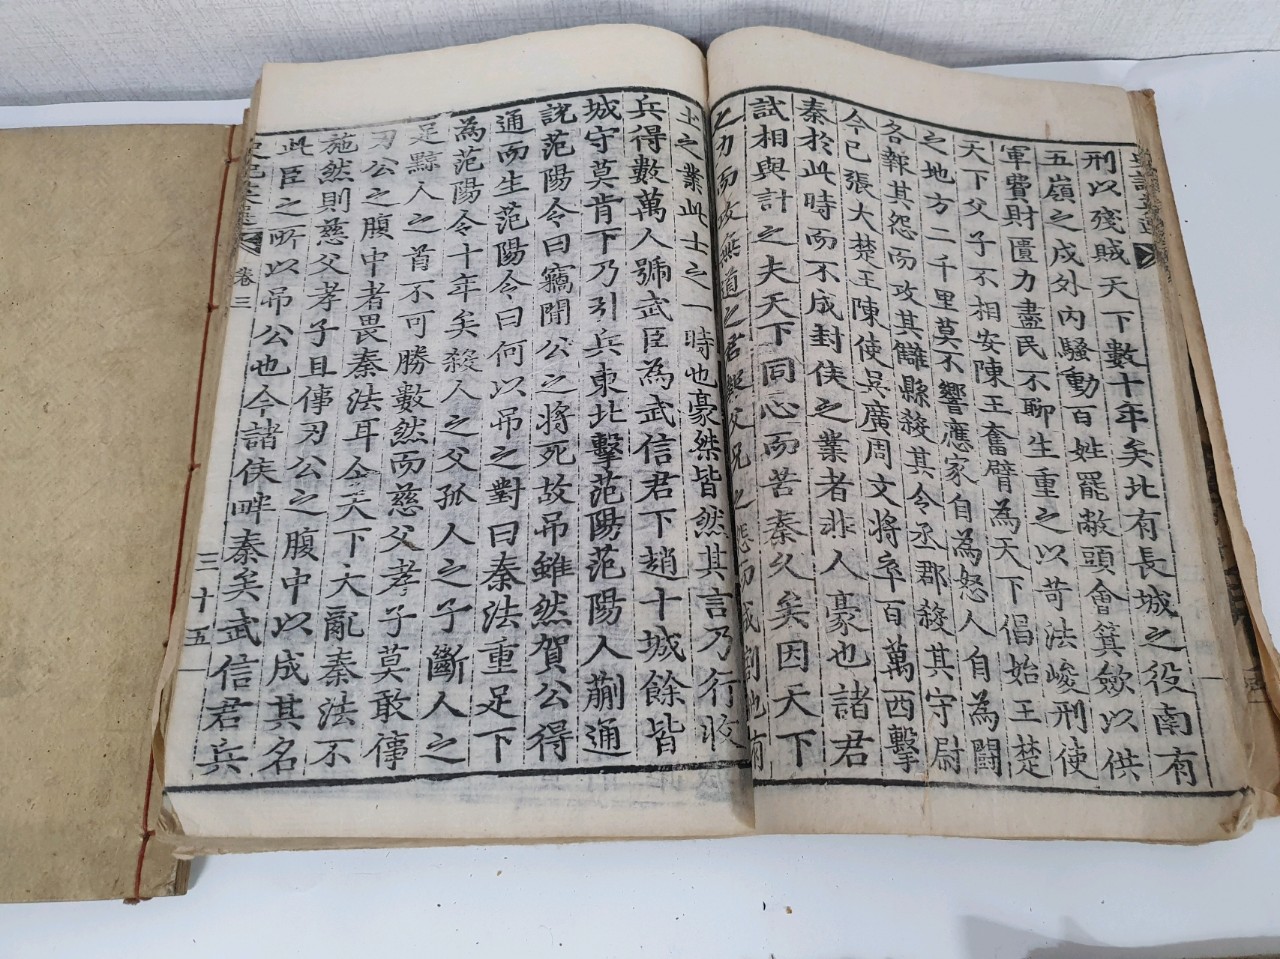 刑以殘賊天下數十年矣北有長城之役南有
五嶺之戍外內騷動百姓罷敝頭會箕歛以供
軍費財匱力盡民不聊生重之以苛法峻刑使
天下父子不相安陳王奮臂為天下倡始王楚
之地方二千里莫不響應家自為怒人自為鬪
各報其怨而攻其讎縣殺其令丞郡殺其守尉
今已張大楚王陳使吳廣周文將卒百萬西擊
秦於此時而不成封侯之業者非人豪也諸君
試相與計之夫天下同心而苦秦久矣因天下
之力而攻無道之君報父兄之怨而成割地有
土之業此士之一時也豪桀皆然其言乃行收
兵得數萬人號武臣為武信君下趙十城餘皆
城守莫肯下乃引兵東北擊范陽范陽人蒯通
說范陽令曰竊聞公之將死故吊雖然賀公得
通而生范陽令曰何以吊之對曰秦法重足下
為范陽令十年矣殺人之父孤人之子斷人之
足黥人之首不可勝數然而慈父孝子莫敢倳
刃公之腹中者畏秦法耳今天下大亂秦法不
施然則慈父孝子且倳刃公之腹中以成其名
此臣之所以吊公也今諸侯畔秦矣武信君兵
史記英選 卷三 三十五